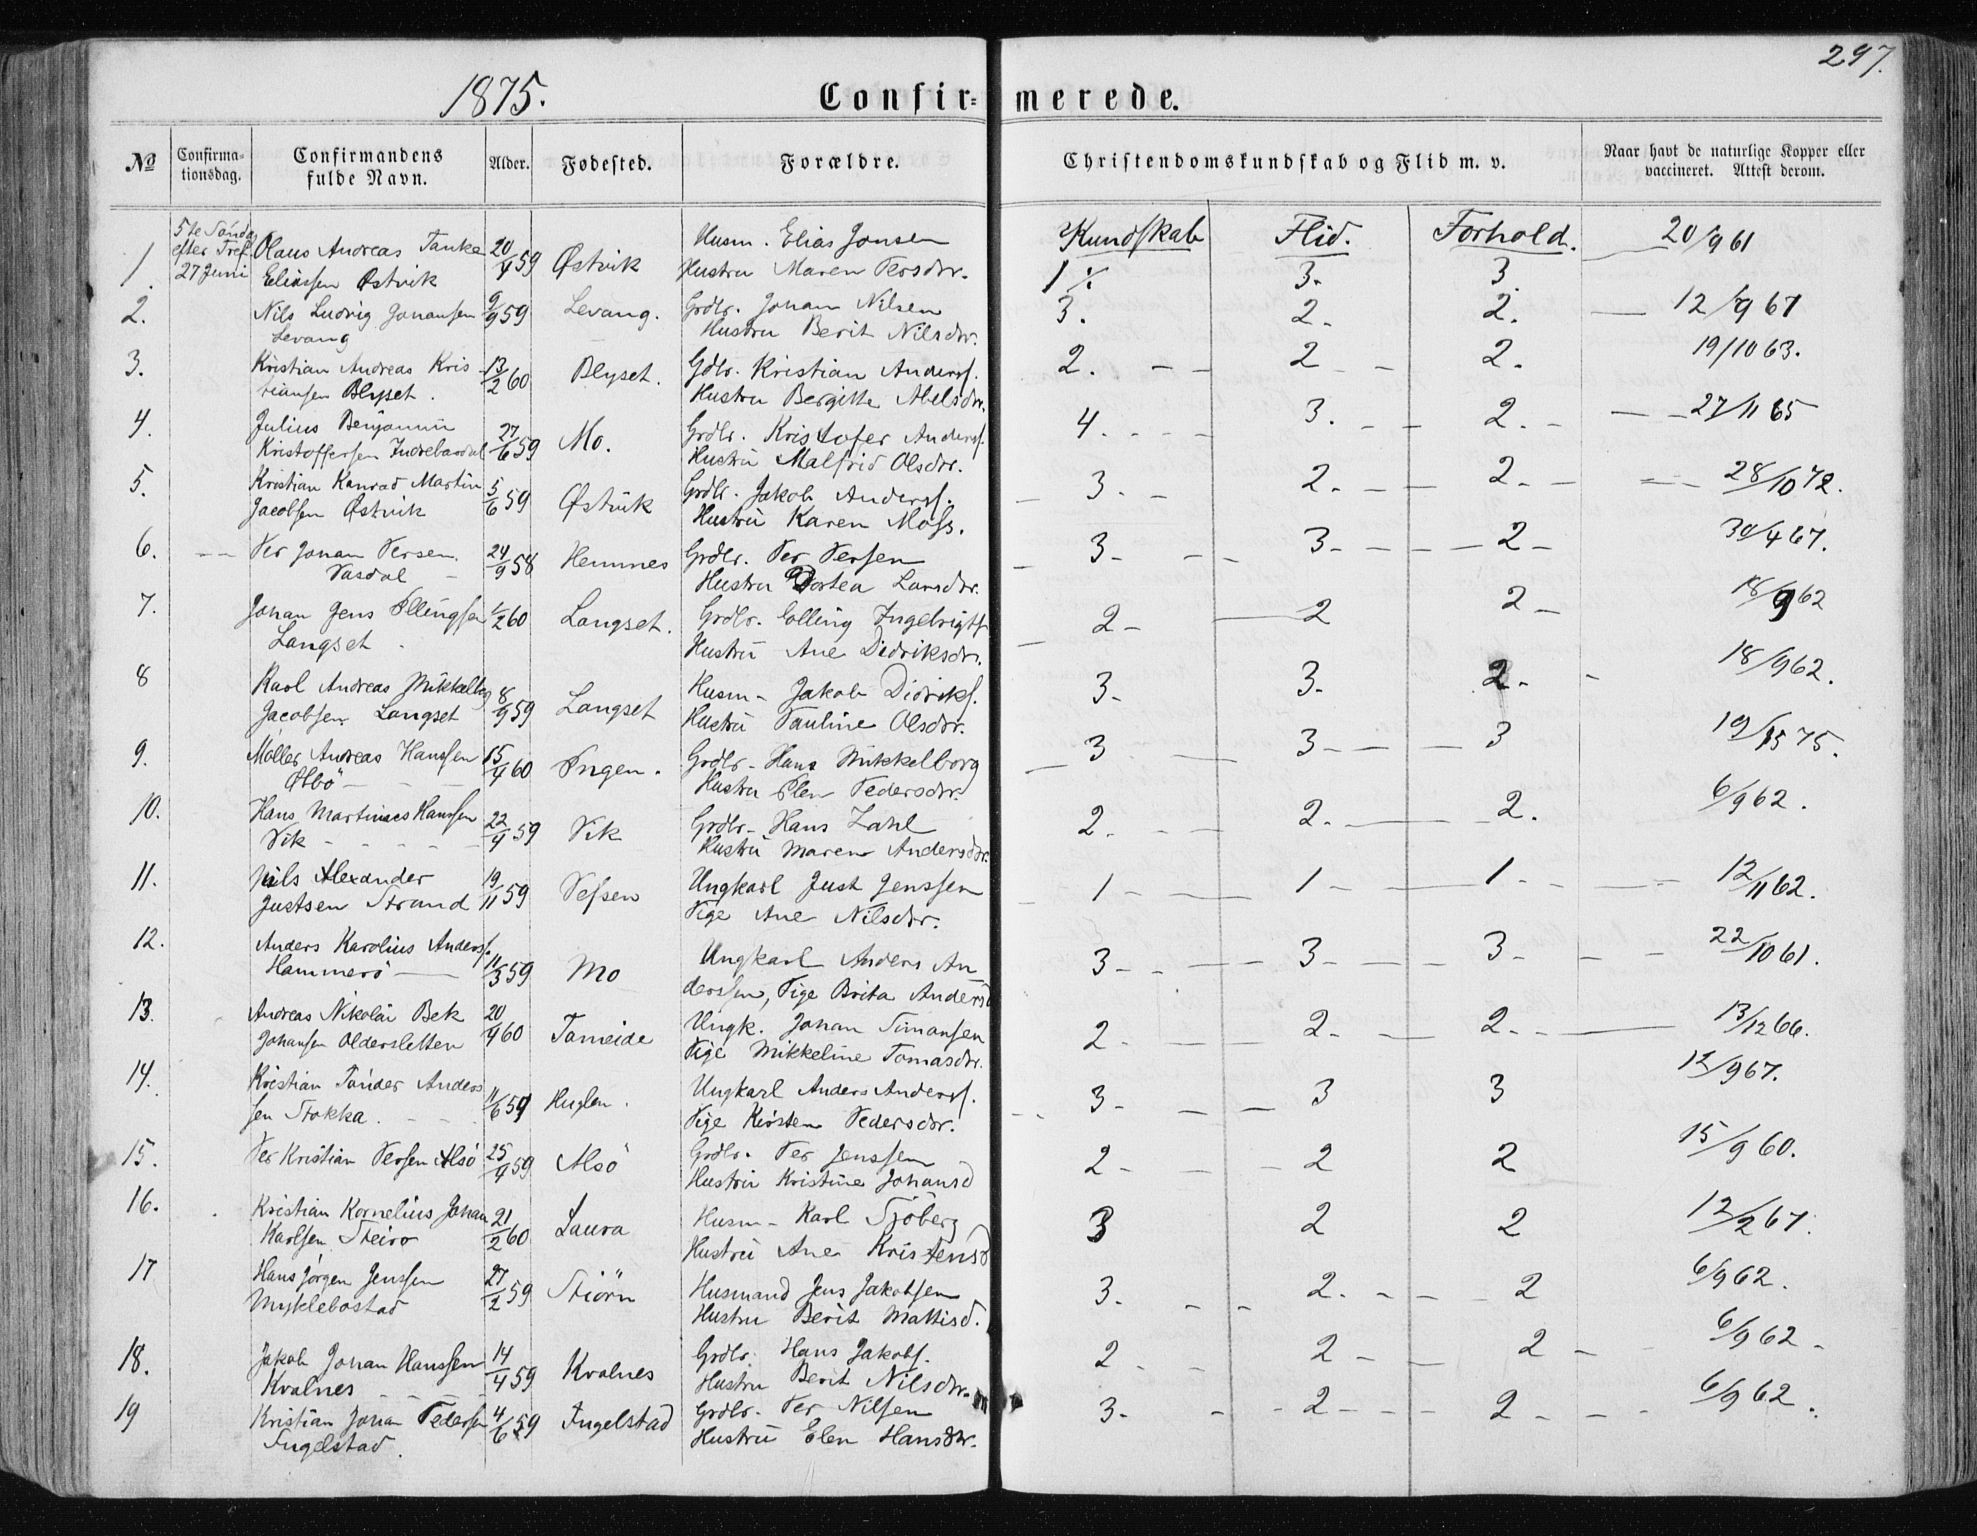 297.
1875. Confir= merede.
No Confirma-tionsdag. Confirmandens fulde Navn. Alder. Fødested. Forældre. Christendomskundskab og Flid m. v. Naar havt de naturlige Kopper eller vaccineret. Attest derom.
Kundskab Flid. Forhold.
5te Søndag efter Tref. 27 Juni
1. Olaus Andreas Tanke 20/4 59 Østvik Husm. Elias Jonsen 20/9 61
Eliassen Østvik Hustru Maren Persdtr. 1 3. 3
2. Nils Ludvig Johansen 9/9 59 Levang. Grdbr. Johan Nilsen 3. 2. 2. 12/9 67
Levang Hustru Berit Nilsdtr.
3. Kristian Andreas Kris 13/2 60 Blyset. Gdbr. Kristian Anderss. 2. 2 2. 19/10 63.
tiansen Blyset. Hustru Bergitte Abelsdtr.
4. Julius Benjamin 27/6 59 Mo. Grdbr. Kristofer Anderss. 4. 3. 2. 27/11 65
Kristoffersen Indrebardal Hustru Malfrid Olsdtr.
5. Kristian Konrad Martin 5/6 59 Østvik Grdbr. Jakob Anderss. 3. 2. 2. 28/10 72.
Jacobsen Østvik Hustru Karen Moss.
6. Per Johan Persen 24/9 58 Hemnes Grdbr. Per Persen 3 3. 2 30/4 67.
Vasdal Hustru Dortea Larsdtr.
7. Johan Jens Ellingsen 1/2 60 Langset. Grdbr. Elling Ingebrigts. 2 2 2 18/9 62
Langset. Hustru Ane Didriksdtr.
8 Karl Andreas Mikkelborg 8/9 59 Langset Husm. Jakob Didriks. 3. 3. 2. 18/9 62.
Jacobsen Langset Hustru Pauline Olsdtr.
9. Møller Andreas Hanssen 15/4 60 Engen. Grdbr. Hans Mikkelborg 3 3 3 19/ 75.
Hustru Elen Pedersdtr.
10. Hans Martinius Hanssen 22/4 59 Vik Grdbr. Hans Zahl 2. 2. 2. 6/9 62.
Vik Hustru Maren Andersdtr.
11. Nils Alexander 19/11 59 Vefsen Ungkarl Just Jenssen 1 1 1 12/11 62.
Justsen Strand Pige Ane Nilsdtr.
12. Anders Karolius Anderss. 11/3 59 Mo Ungkarl Anders An 3 3 3 22/10 61.
Hammerö derssen, Pige Brita Andersd
13. Andreas Nikolai Bek 20/4 60 Tameide Ungk. Johan Simonsen 2 2 2. 13/12 66.
Johansen Oldersletten Pige Mikkeline Tomasdtr.
14. Kristian Tønder Anders 11/6 59 Huglen. Ungkarl Anders Anderss. 3 3 3 12/9 67.
sen Stokka. Pige Kirsten Pedersdtr.
15. Per Kristian Persen Alsö 25/4 59 Alsö Grdbr. Per Jenssen 2 2 2 15/9 60.
Hustru Kristine Johansd
16. Kristian Kornelius Johan 21/2 60 Laura Husm. Karl Sjöberg 3 2 2 12/2 67.
Karlsen Steiro Hustru Ane Kristensd
17 Hans Jørgen Jenssen 27/2 59 Stiörn Husmand Jens Jakobsen 3. 2. 2 6/9 62.
Myklebostad Hustru Berit Mattisd.
18. Jakob Johan Hanssen 14/4 59 Kvalnes Grdbr. Hans Jakobs. 2 2 2 6/9 62
Kvalnes Hustru Berit Nilsdtr.
19 Kristian Johan Pedersen 4/6 59 Ingelstad Grdbr. Per Nilsen 3. 2 2 6/9 62
Ingelstad. Hustru Elen Hansdtr.